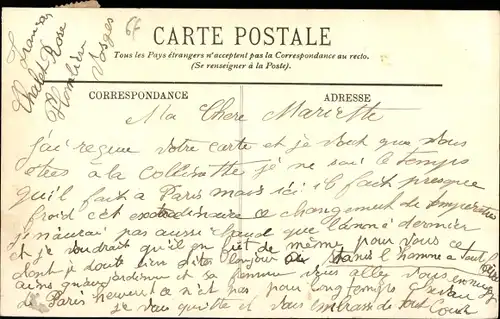 Chalet Rose
Plombières
Vosges
CARTE POSTALE
Tous les Pays étrangers n'acceptent pas la Correspondance au recto.
(Se renseigner à la Poste).
CORRESPONDANCE
ADRESSE
Ma Chere Mariette
j'ai reçue votre carte et je voit que vous
etes à la je ne sai le temps
qu'il fait a Paris mais ici il fait presque
froid cet extradinaire ce changement de
je n'aurai pas aussi chaud que dernier
et je voudrait qu'il en fut de même pour vous ce
dont je doute bien dites bonjour l'homme a tout
ainsi qu'au jardinier et sa femme vous allez vous
de Paris heureut ce n'et pas pour longtemps
je vous quitte et vous embrasse de tout Coeur